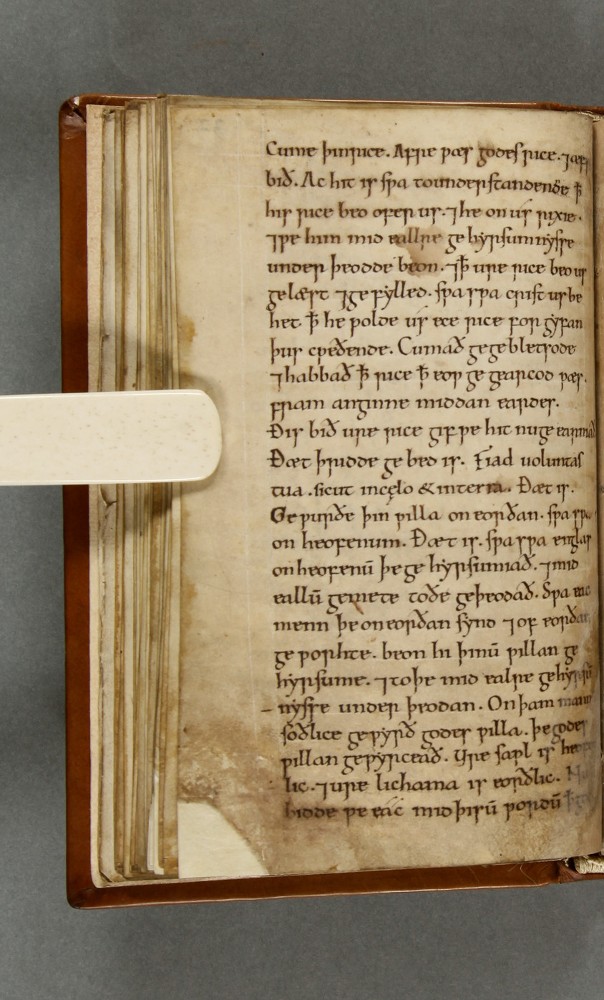 Cume þin rice. Æfre wæs godes rice. ⁊ æfre
bið. Ac hit is swa to understandenne ꝥ
his rice beo ofer us. ⁊ he on us rixie.
⁊ we him mid eallre gehyrsumnysse
under þeodde beon. ⁊ ꝥ ure rice beo us
gelæst ⁊ gefylled. swa swa crist us be
het. ꝥ he wolde us ece rice forgyfan
þus cweðende. Cumað ge gebletsode
⁊ habbað ꝥ rice ꝥ eow gegearcod wæs.
fram anginne middan eardes.
Ðis bið ure rice gif we hit nu ge earniað
Ðæt þridde gebed is. Fiad uoluntas
tua. sicut in cęlo & in terra. Ðæt is.
Gewurðe þin willa on eorðan. swa swa
on heofenum. Ðæt is. swa swa englas
on heofenū þe gehyrsumiað. ⁊ mid
eallū gemete to ðe geþeodað. Swa eac
menn þe on eorðan synd ⁊ of eorðan
geworhte. beon hi þinū willan ge
hyrsume. ⁊ to þe mid ealre gehyrsū
nysse under þeodan. On þam mannū
soðlice gewyrð godes willa. þe godes
willan gewyrceað. Ure sawl is heo
lic. ⁊ ure lichama is eorðlic.
bidde we eac mid þisū wordū